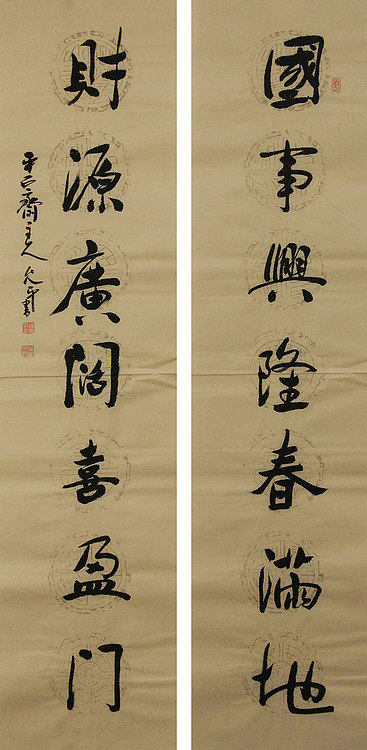 國事興隆春滿地
財源廣阔喜盈门
齋主人